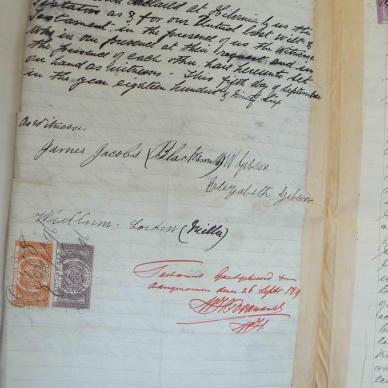 declared at Hebron by us the
Testators as & for our Mutual Last Will &
Testament. in the presence of us the Witnesses
who in our presence at their request and in
the presence of each other, have hereunto set
our hand as witnesses. This fifth day of September
in the year eighteen hundred & ninety six
As Witnesses
James Jacobs (Blacksmith) W Gibson
Elizabeth Gibson
William London (Miller)
Testament Goedgekeurd &
Aangenomen den 26 Septr. 189